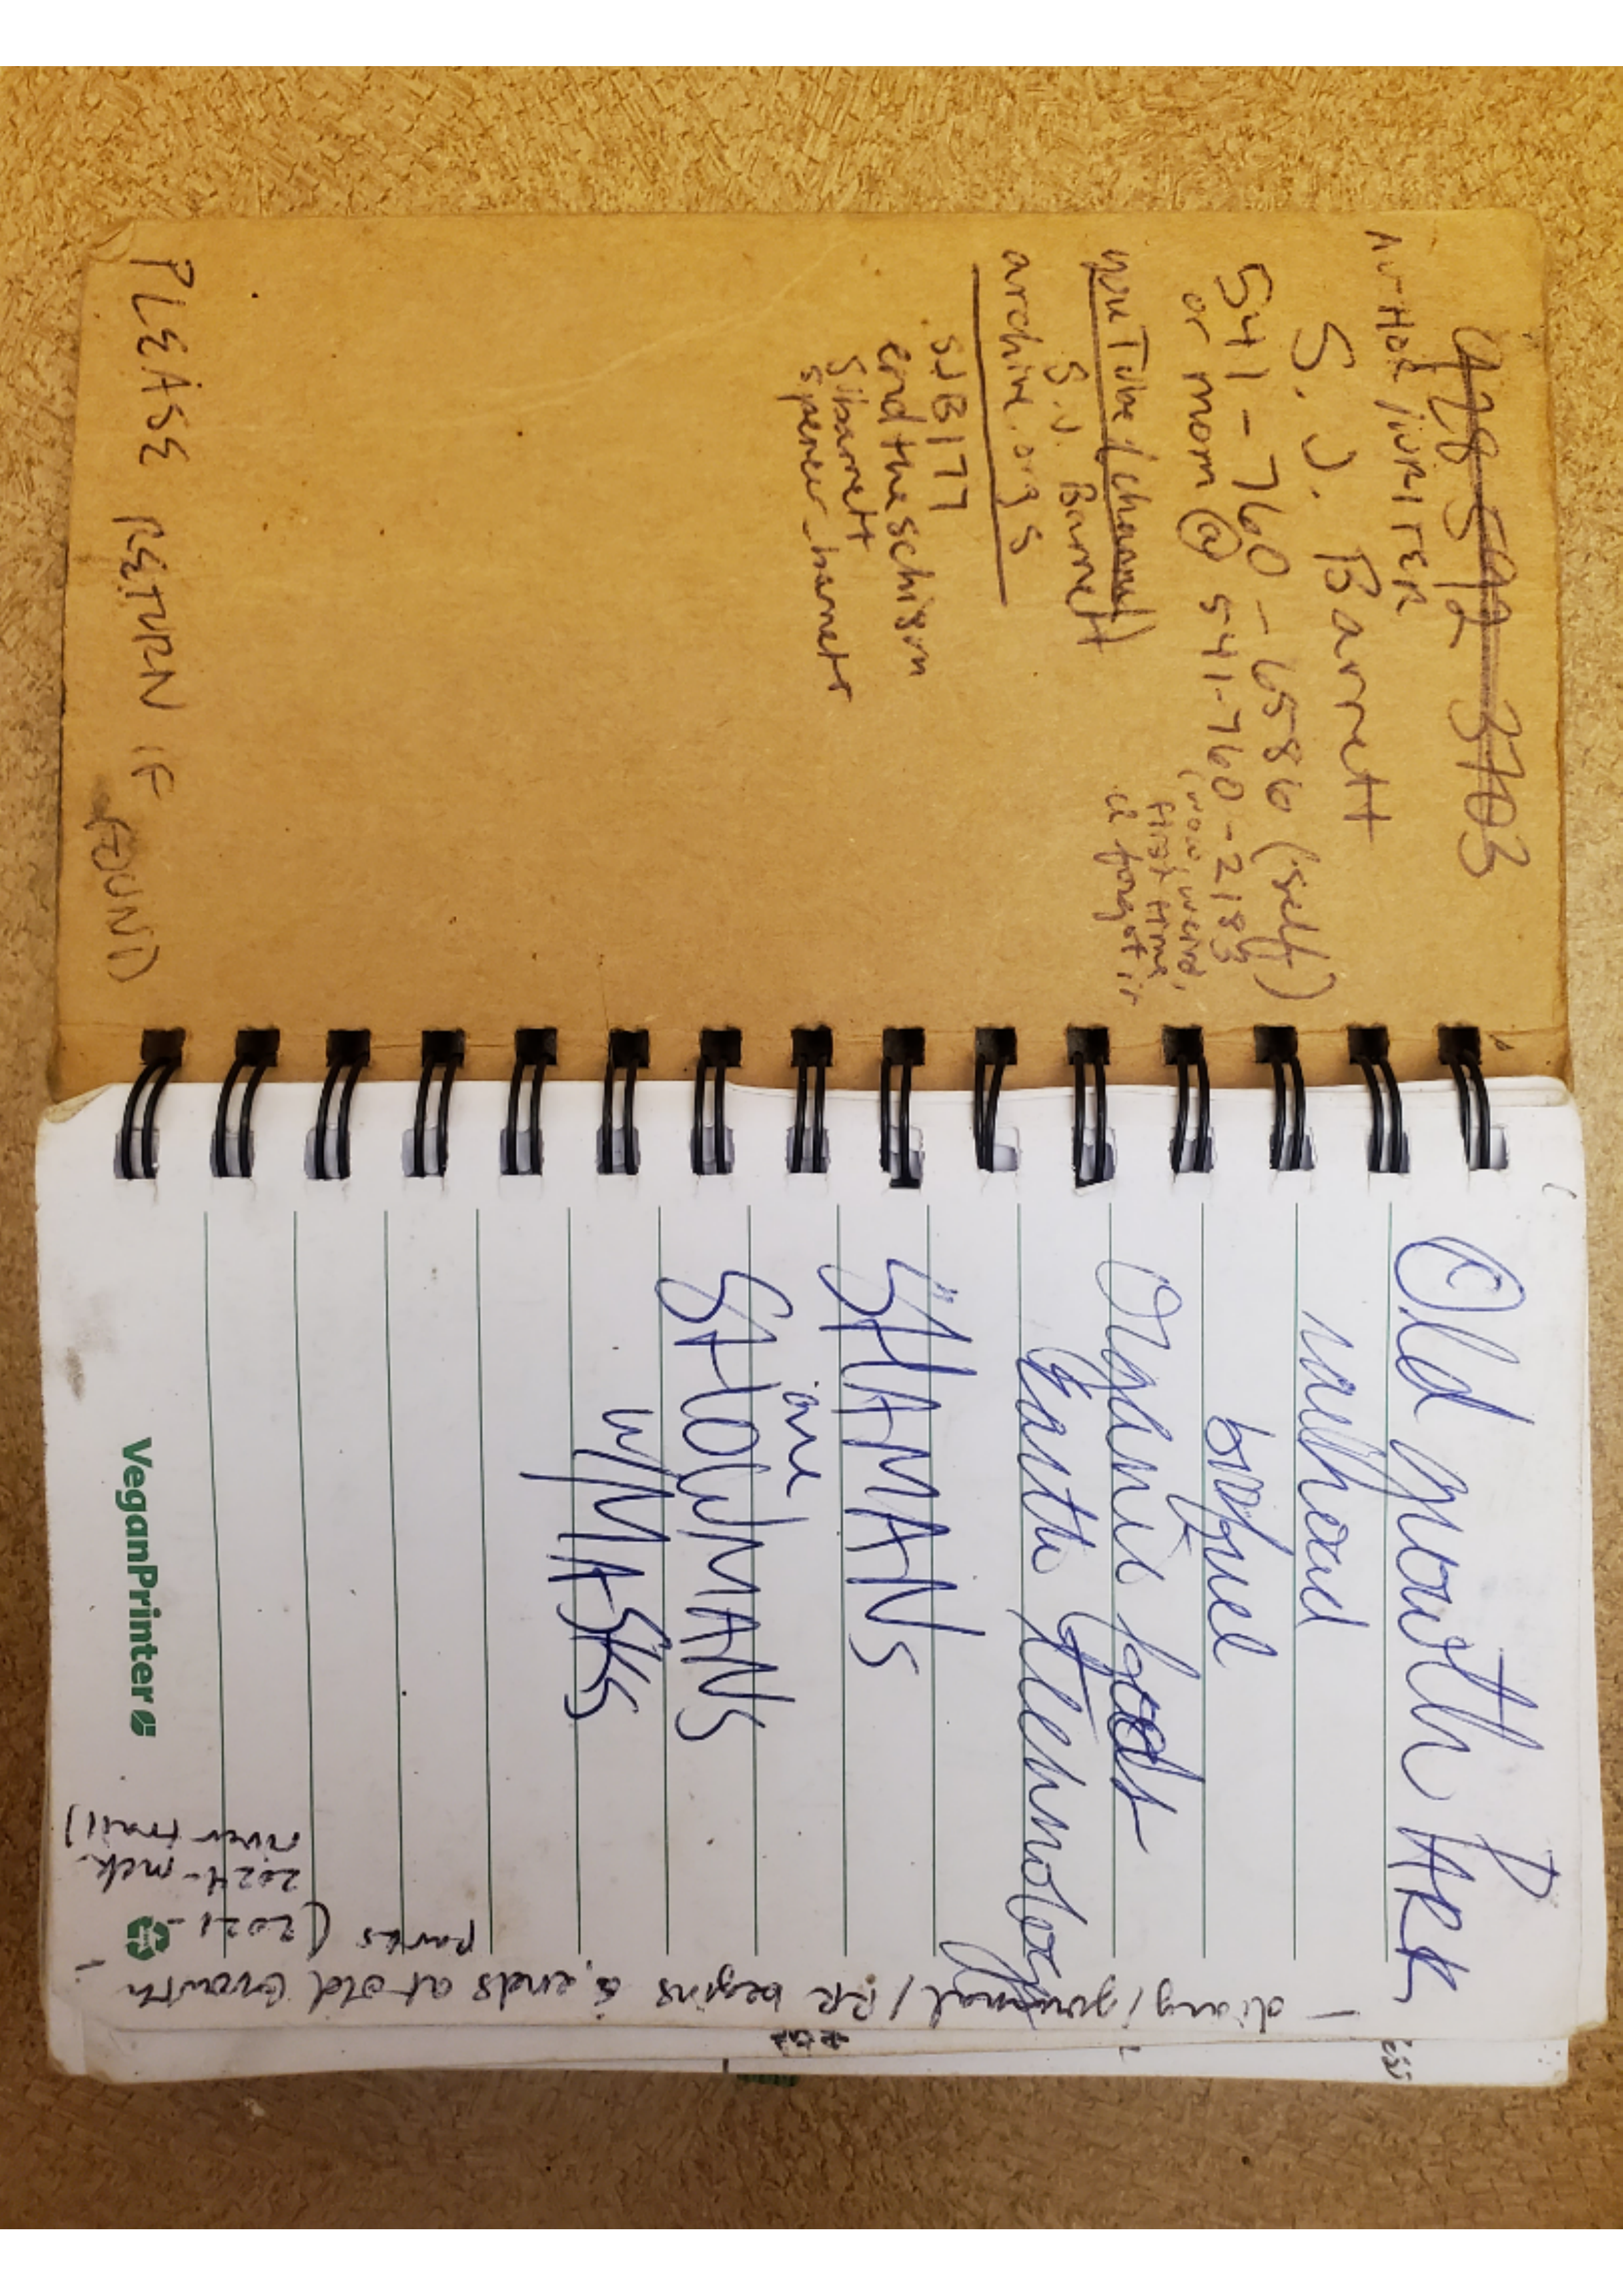 928 592 3703
AUTHOR/WRITER
S.J. Barrett
541-760-6586 (self)
or mom @ 541-760-2183
(wow, weird,
first time
I forgot it
YouTube (channel)
S.J. Barrett
archive.orgs
SJB177
endtheschism
sjbarrett
spencer_barrett
PLEASE RETURN IF
FOUND)
Old growth ARK
railroad
biofuel
Organic food
Earth Technology
SHAMANS
are
SHOWMANS
W/MASKS
VeganPrinter
- diary/journal/RR begins & ends at old Growth -
parks (2021-
2024-mck.
river trail)
ess